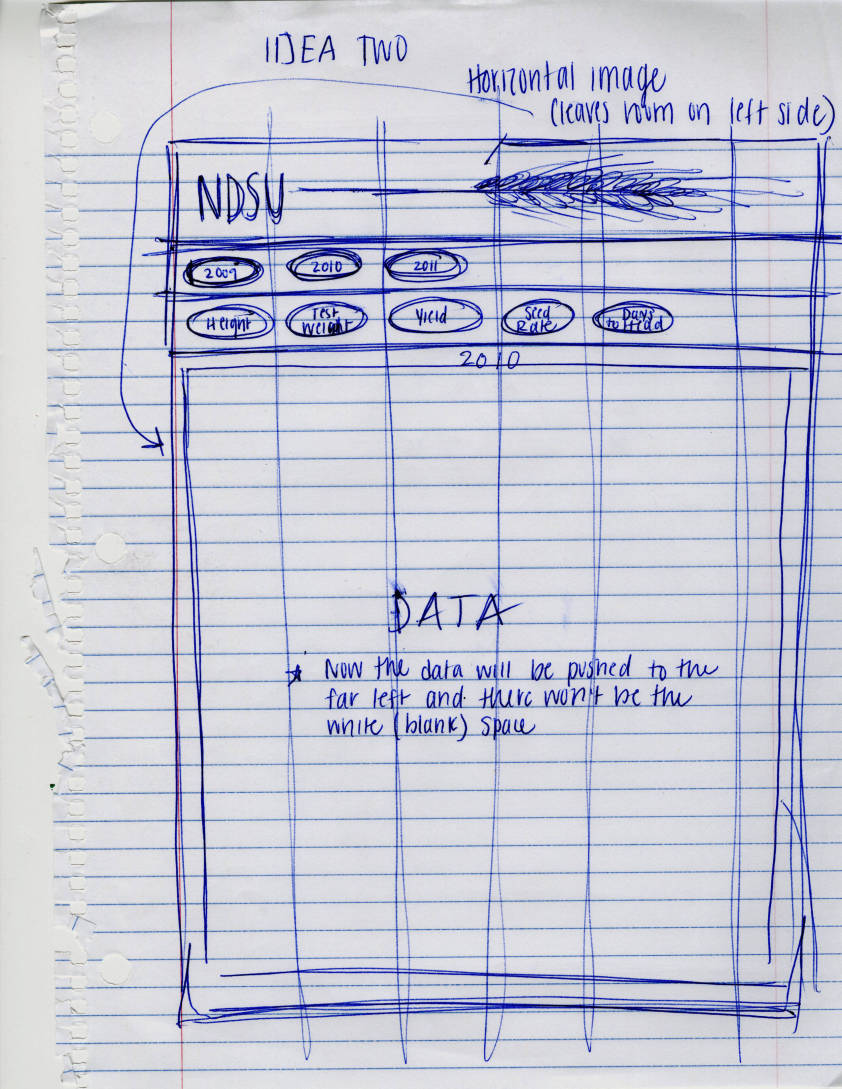 IDEA TWO
Horizontal image
(leaves room on left side)
NDSU
2009 2010 2011
Height Test Weight Yield Seed Rate Days to Head
2010
DATA
★ Now the data will be pushed to the
far left and there won't be the
white (blank) space